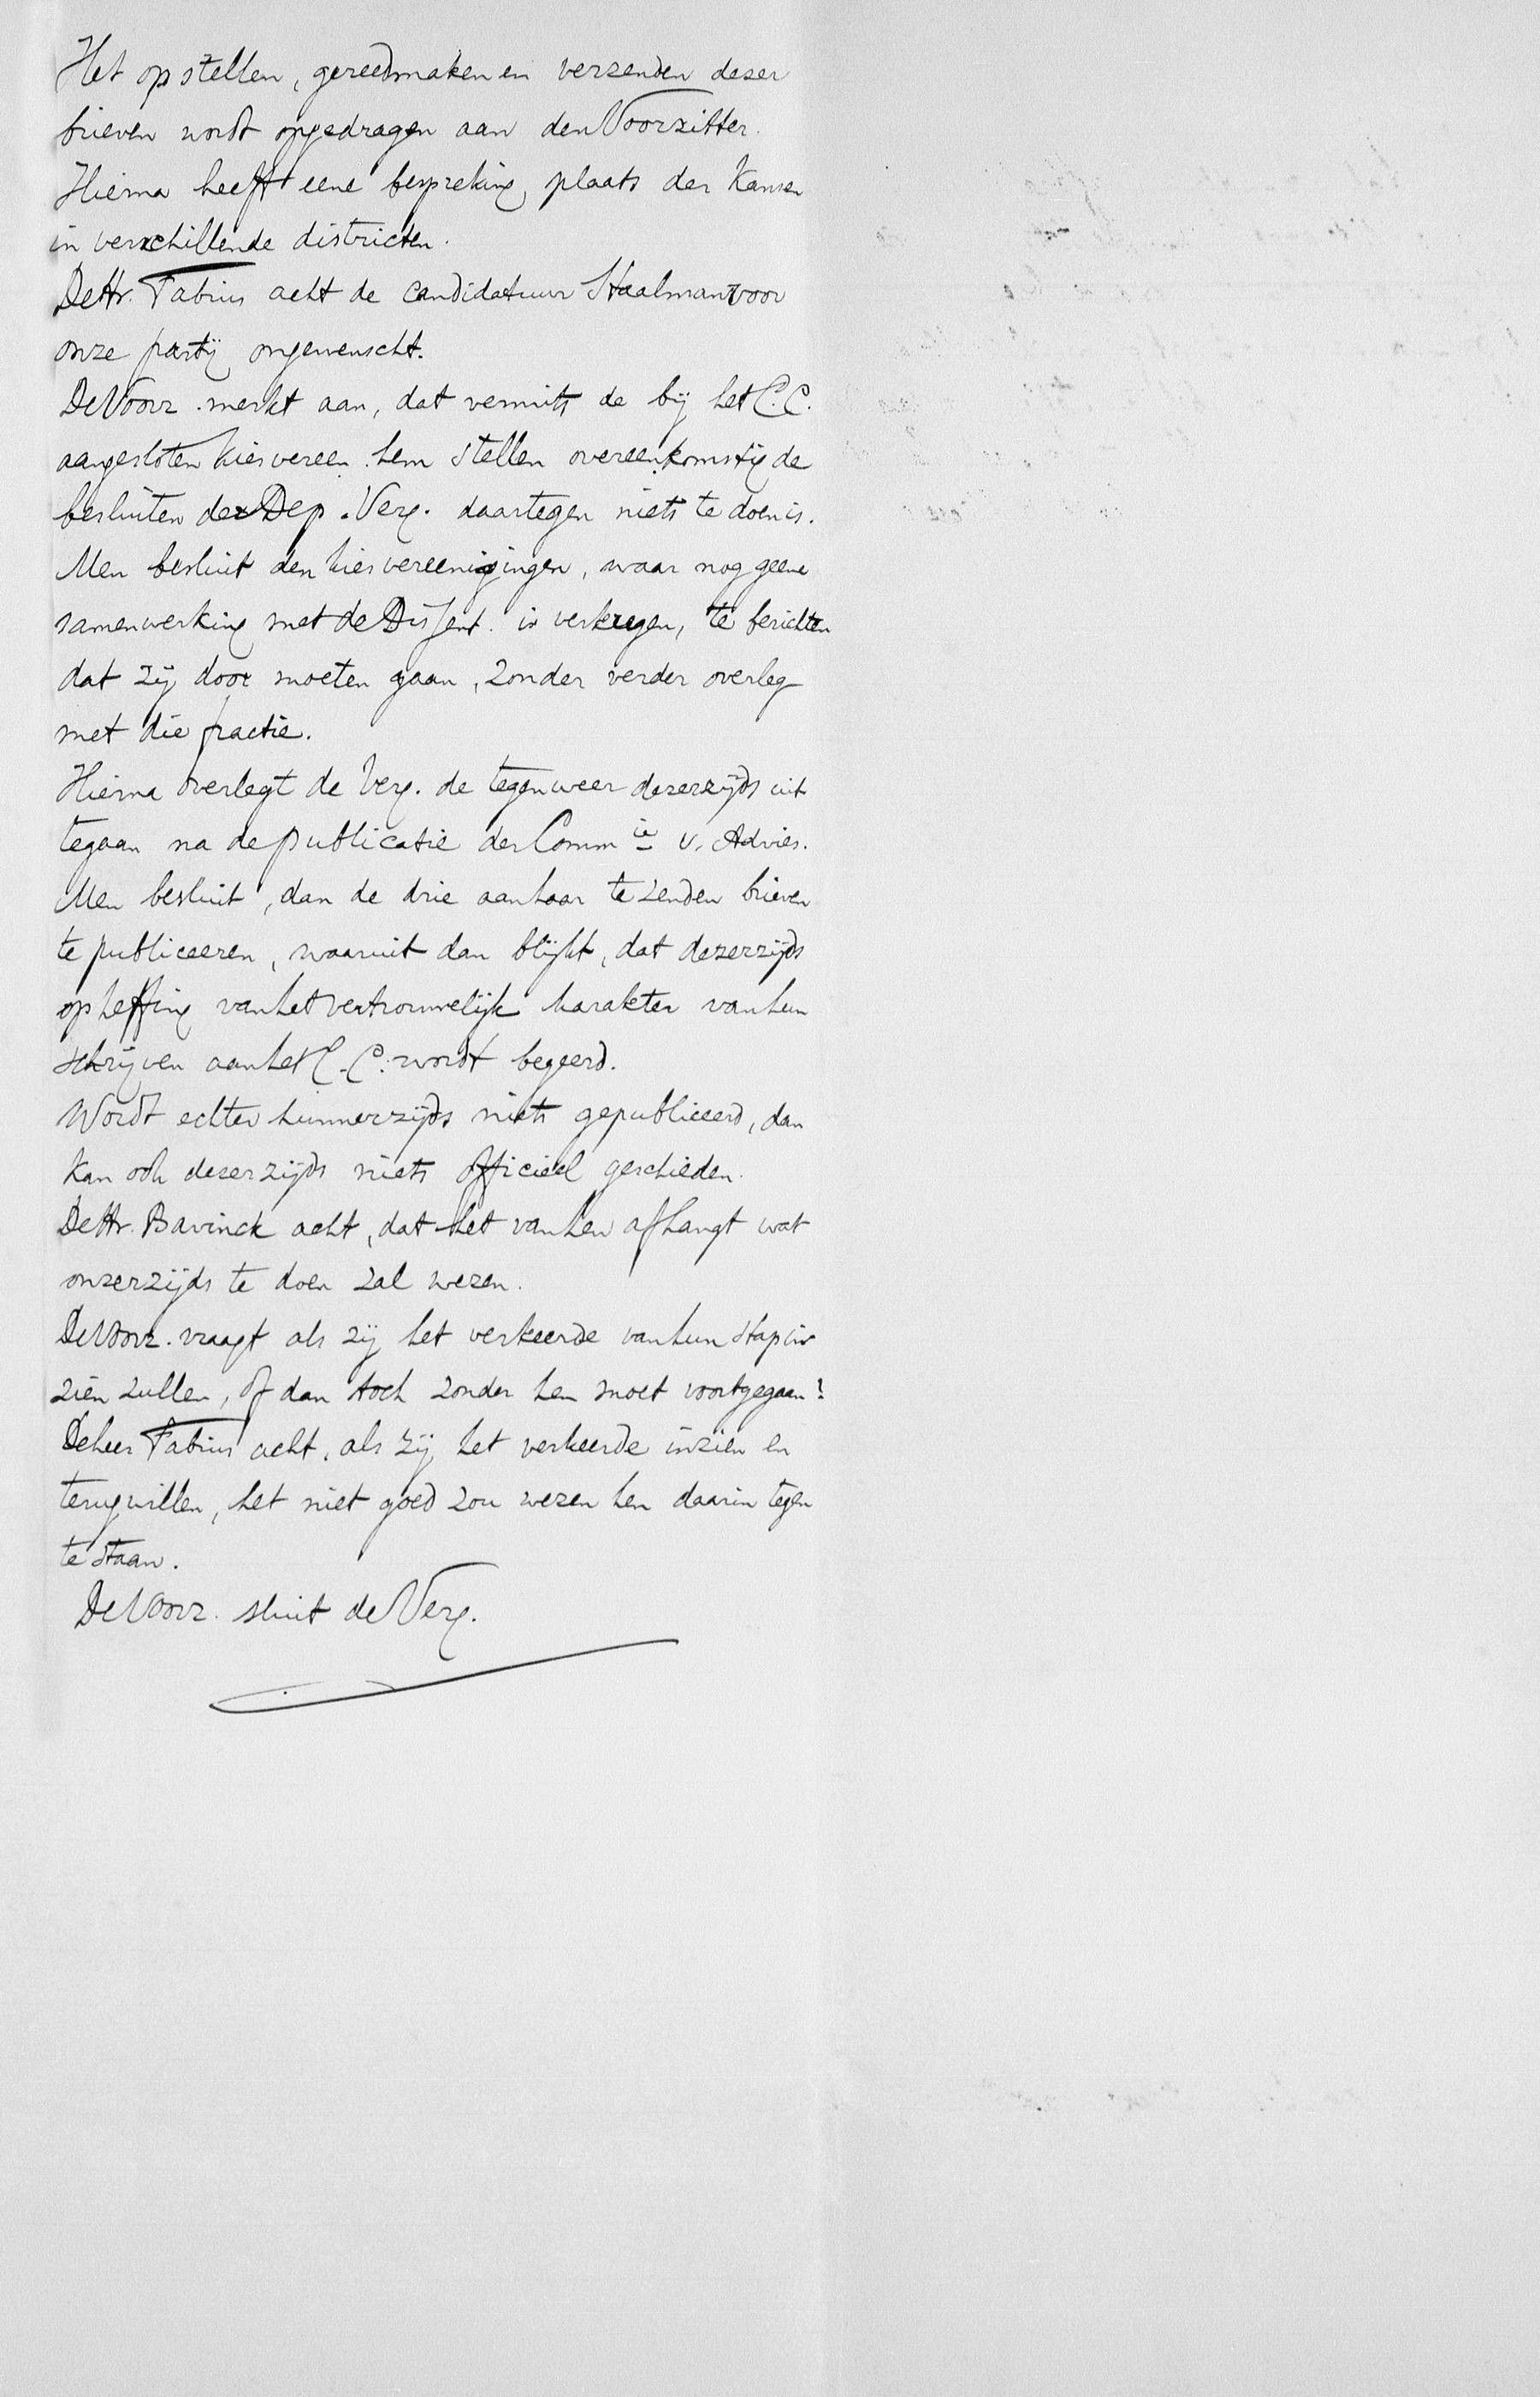 Het opstellen, gereedmaken en verzenden dezer
brieven wordt opgedragen aan den Voorzitter.
Hierna heeft eene bespreking plaats der Kansen
in verschillende districten.
De Hr. Fabius acht de candidatuur Staalman voor
onze partij ongewenscht.
De Voorz. merkt aan, dat vermits de bij het C.C.
aangesloten kiesvereen. hem stellen overeenkomstig de
besluiten der Dep. Verg. daartegen niets te doen is.
Men besluit den kiesvereenigingen, waar nog geene
samenwerking met de Dissent. is verkregen, te berichten
dat zij door moeten gaan, zonder verder overleg
met die fractie.
Hierna overlegt de Verg. de tegenweer dezerzijds uit
te gaan na de publicatie der Comm ie v. Advies.
Men besluit, dan de drie aan haar te zenden brieven
te publiceeren, waaruit dan blijkt, dat dezerzijds
opheffing van het vertrouwelijk karakter van hun
schrijven aan het C.C. wordt begeerd.
Wordt echter hunnerzijds niets gepubliceerd, dan
kan ook dezerzijds niets officieel geschieden.
De Hr. Bavinck acht, dat het van hen afhangt wat
onzerzijds te doen zal wezen.
De Voorz. vraagt als zij het verkeerde van hun stap in
zien zullen, of dan toch zonder hen moet voortgegaan?
De heer Fabius acht, als zij het verkeerde inzien en
terug willen, het niet goed zou wezen hen daarin tegen
te staan.
De Voorz. sluit de Verg.